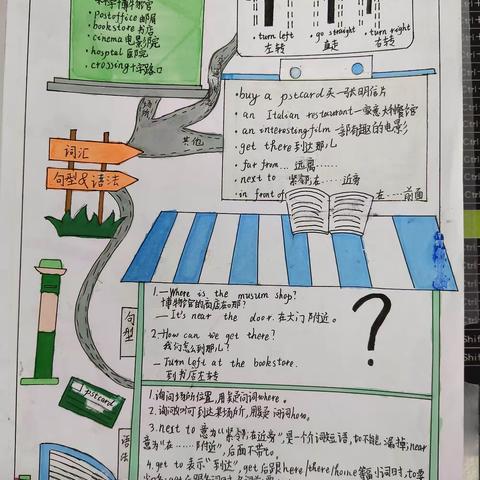 博物馆
· postoffice 邮局
· bookstore 书店
· cinema 电影院
· hosptal 医院
· crossing 十字路口
· turn left
左转
· go straight
直走
· turn right
右转
场所
其他
词汇
句型&语法
· buy a pstcard 买一张明信片
· an Italian restaurant 一家意大利餐馆
· an interesting film 一部有趣的电影
get there 到达那儿
far from... 远离……
next to 紧邻;在……近旁
in front of 在……前面
句型
1. — Where is the musum shop?
博物馆的商店在哪?
— It's near the door. 在大门附近。
2. — How can we get there?
我们怎么到那儿?
— Turn left at the bookstore.
到书店左转
?
pstcard
语法
1. 询问场所位置,用疑问词where。
2. 询问如何到达某场所,用疑问词how。
3. next to 意为"紧邻;在近旁",是一个介词短语,to不能漏掉;near
意为"在……附近",后面不带to。
4. get to 表示"到达",get后跟here/there/home等副词时,to要